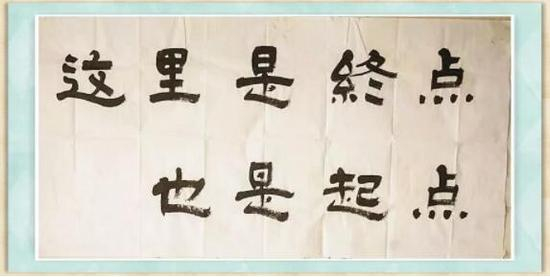 这里是終点
也是起点